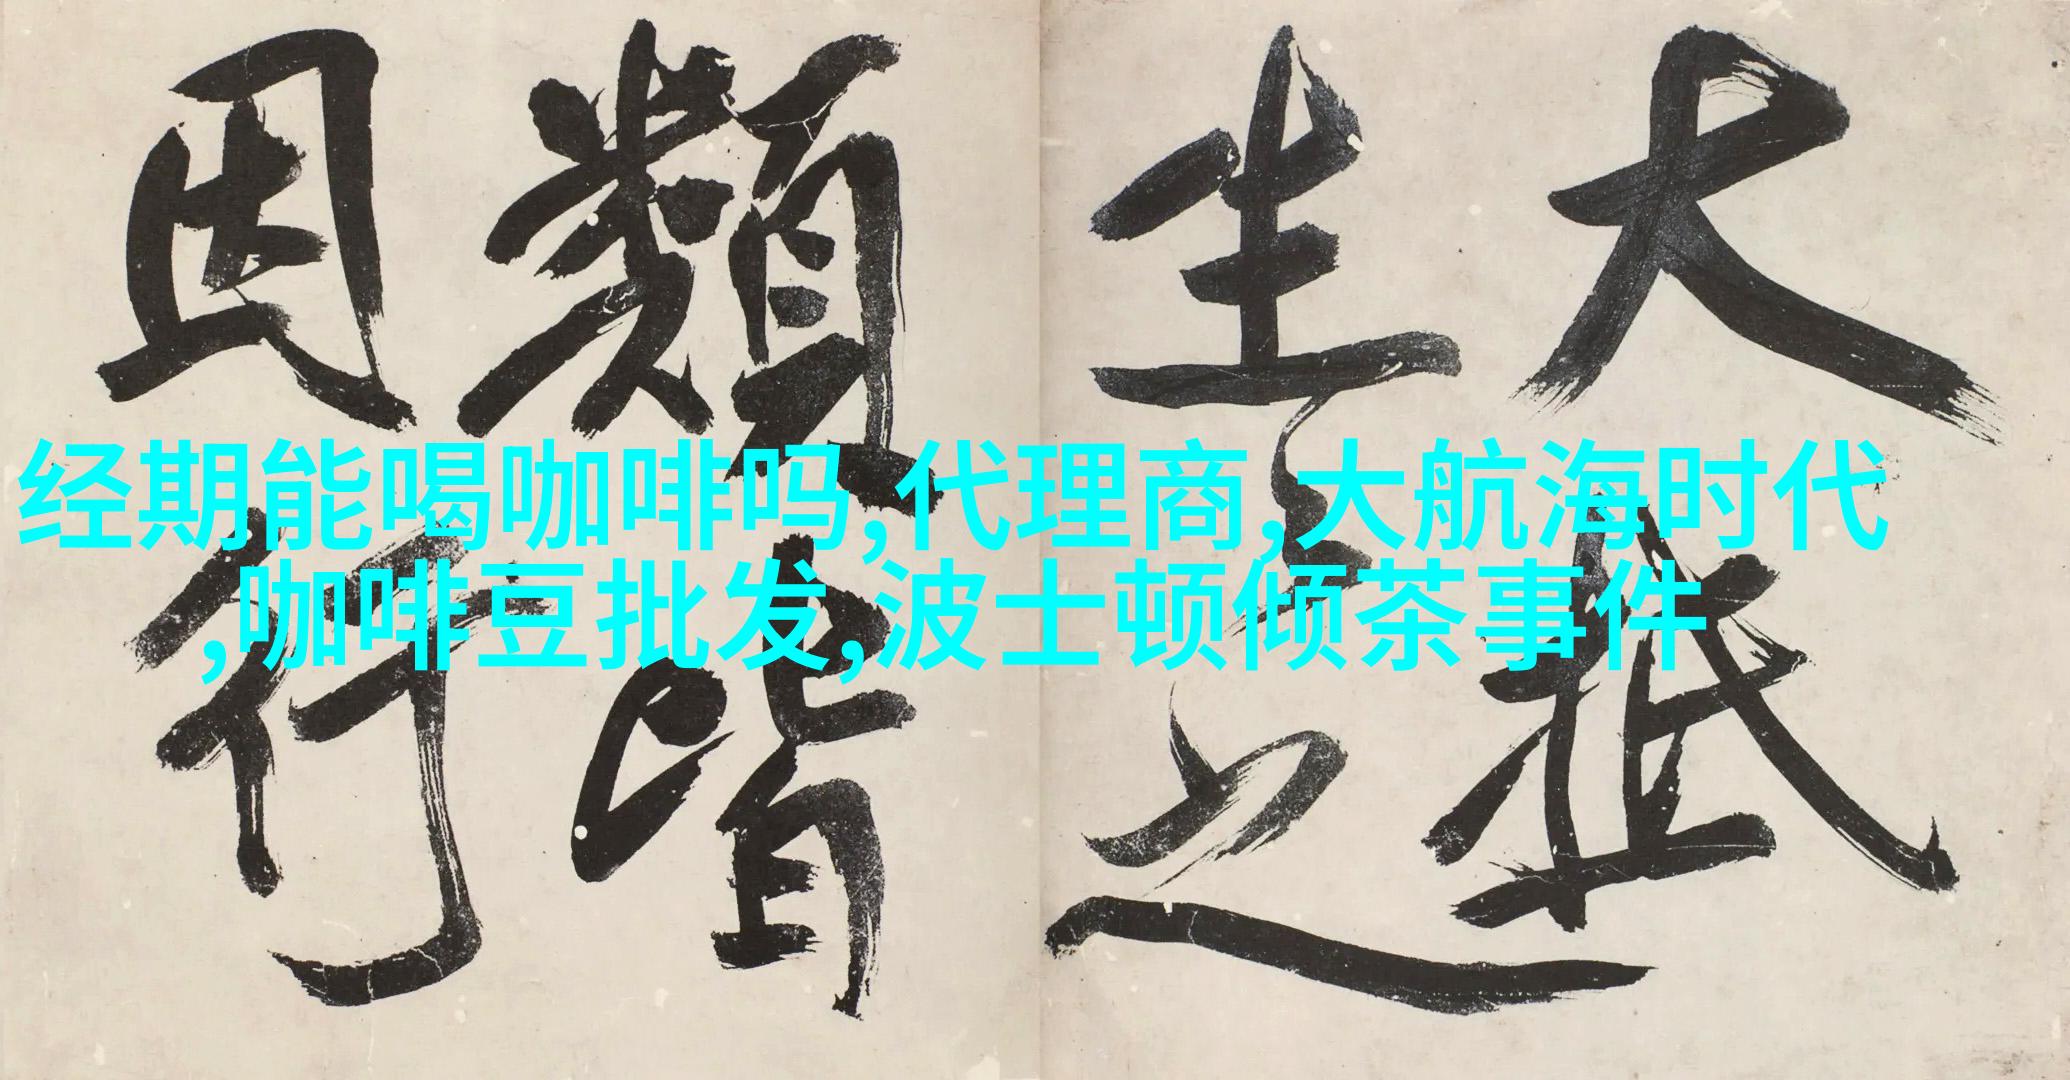 经期能喝咖啡吗,代理商,大航海时代
,咖啡豆批发,波士顿倾茶事件
大抵
生之
類皆
因行